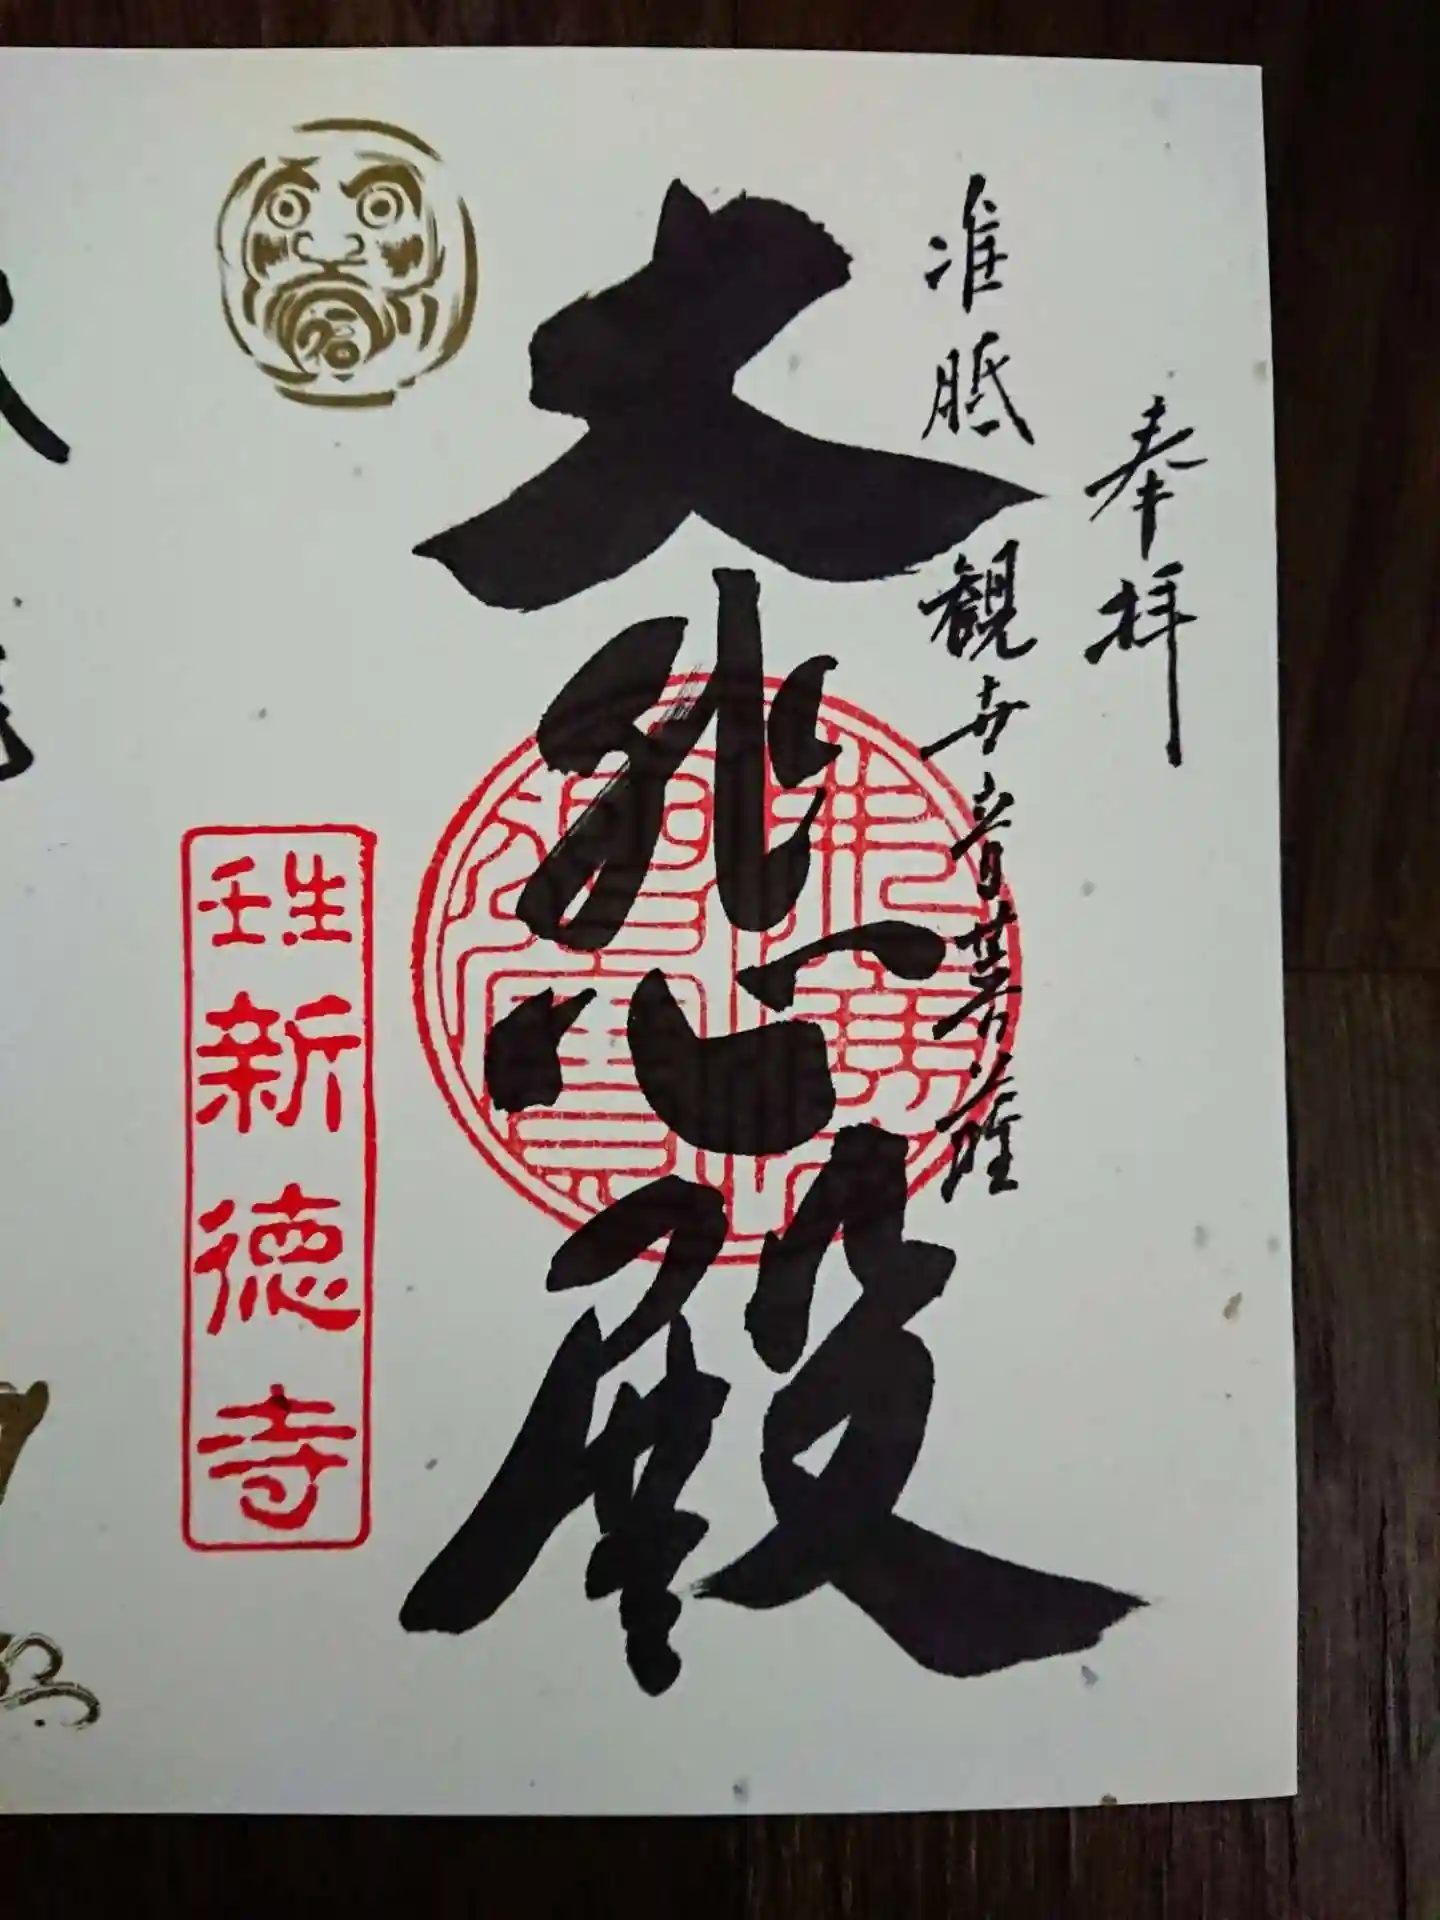 奉拝
准胝観世音菩薩
大悲殿
福
壬生新徳寺